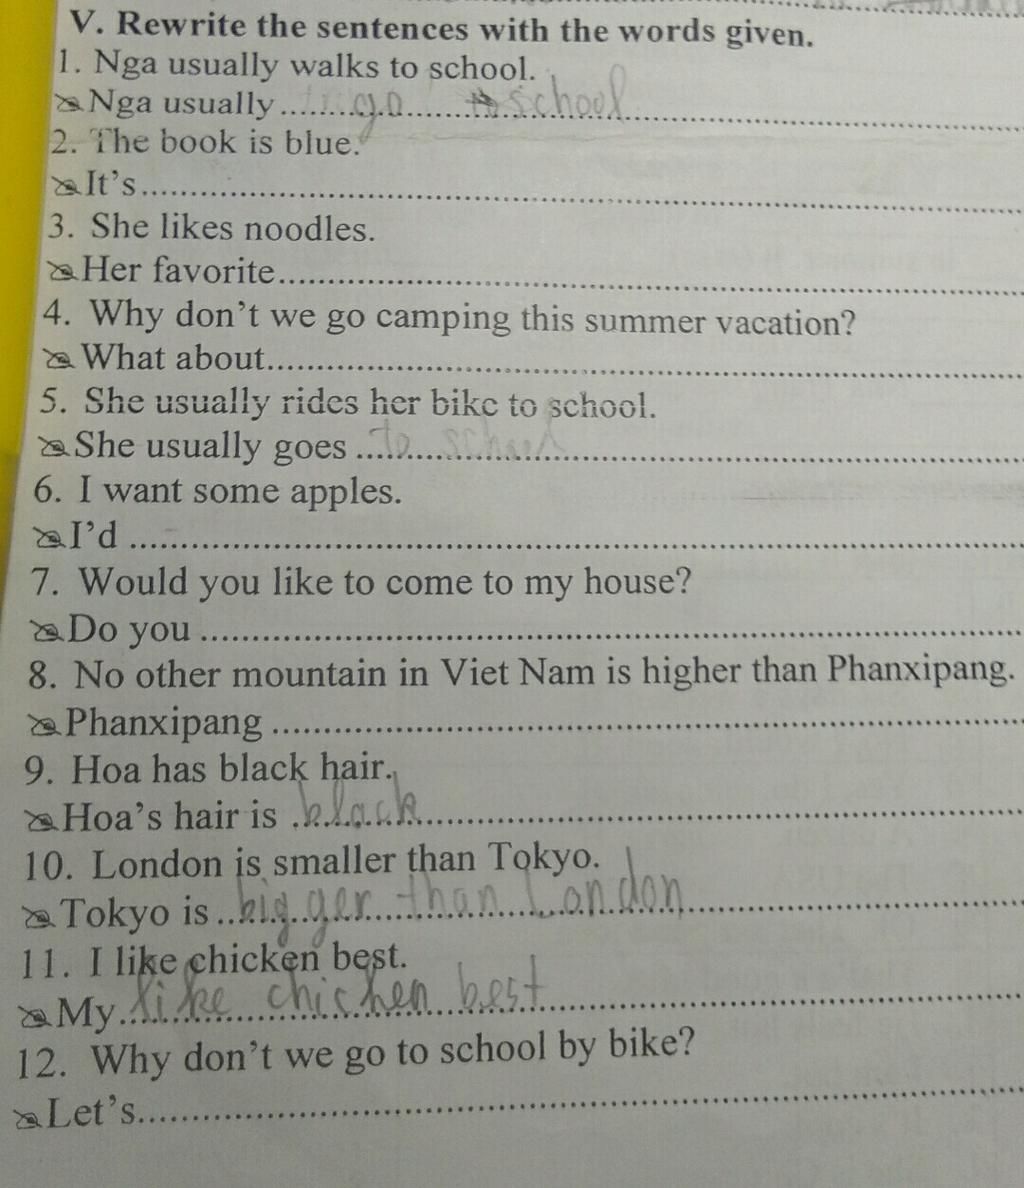 V. Rewrite the sentences with the words given.
1. Nga usually walks to school.
Nga usually ... go ... to school
2. The book is blue.
It's...
3. She likes noodles.
Her favorite...
4. Why don't we go camping this summer vacation?
What about...
5. She usually rides her bike to school.
She usually goes ... to school
6. I want some apples.
I'd ...
7. Would you like to come to my house?
Do you ...
8. No other mountain in Viet Nam is higher than Phanxipang.
Phanxipang ...
9. Hoa has black hair.
Hoa's hair is black
10. London is smaller than Tokyo.
Tokyo is bigger than London
11. I like chicken best.
My like chichen best
12. Why don't we go to school by bike?
Let's...